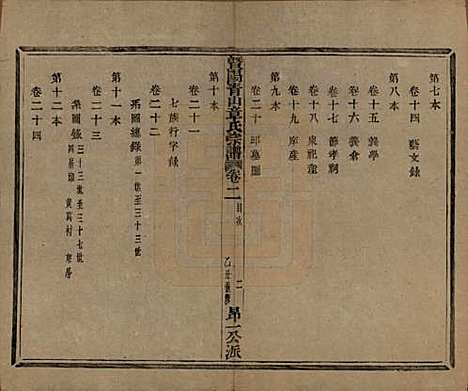 第七本
卷十四 藝文錄
第八本
卷十五 義學
卷十六 義倉
卷十七 節孝祠
卷十八 泉祀產
卷十九 庠產
卷二十 邱墓圖
暨陽青山章氏宗譜 卷二 目次 二 乙丑重修 昂一公派
第十本
卷二十一
七族行字錄
卷二十二
系圖總錄 第一世至三十三世
第十一本
卷二十三
系圖錄 三十三世至三十七世
第十二本
卷二十四